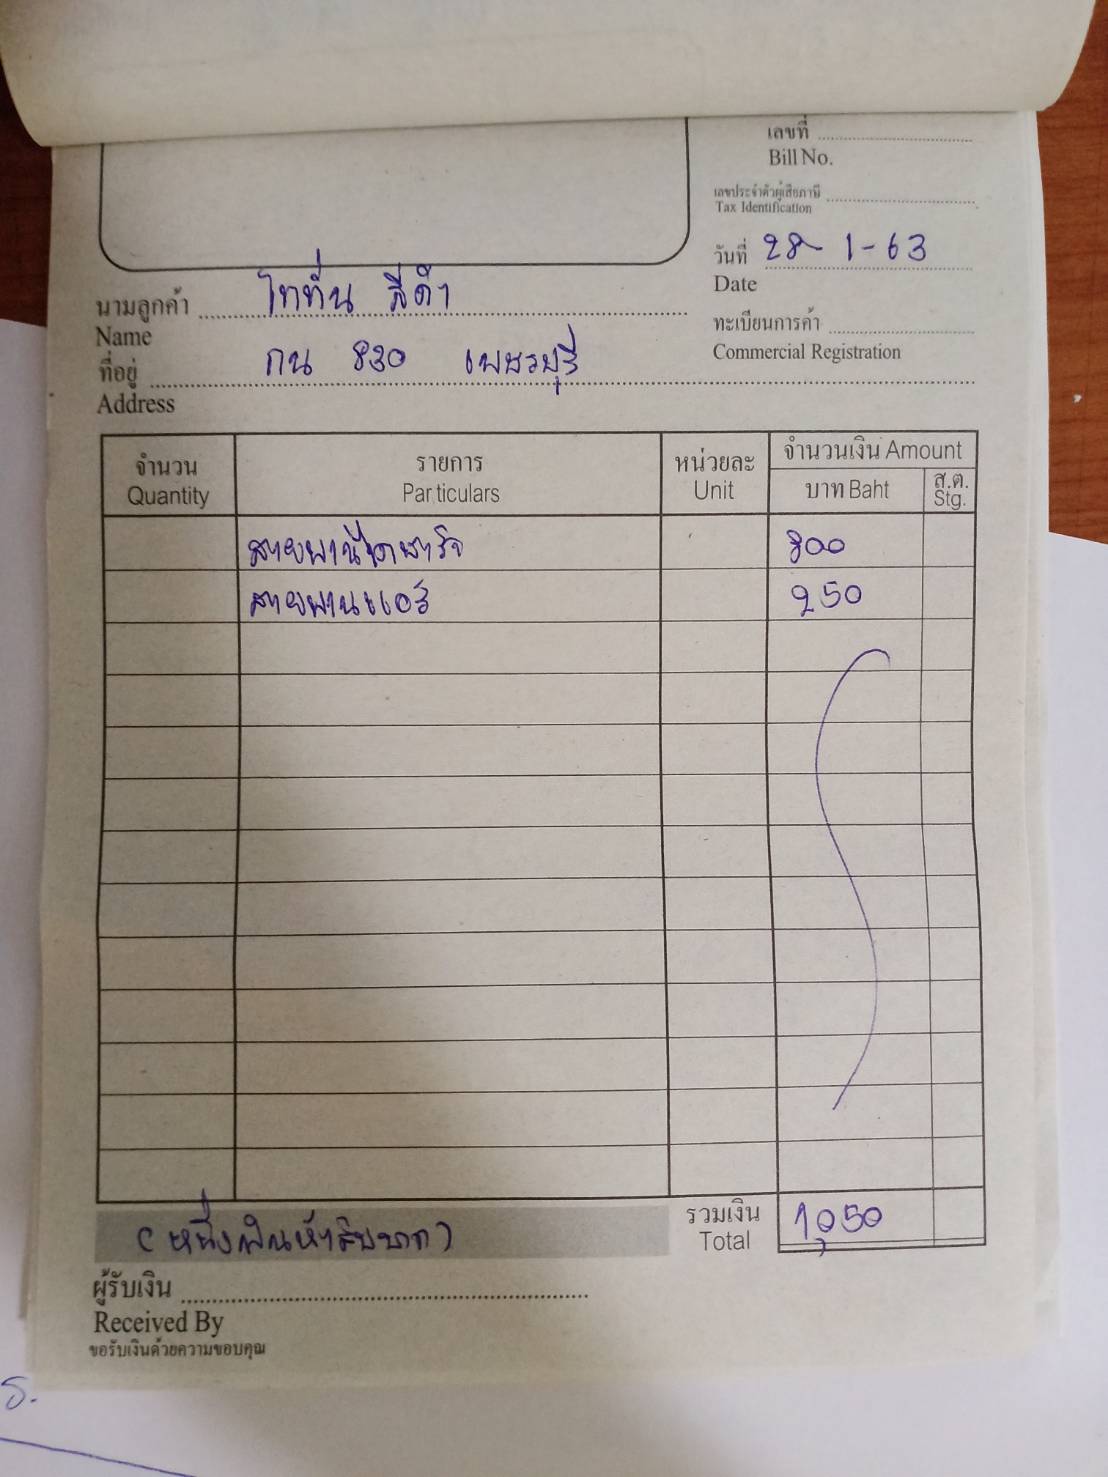 เลขที่
Bill No.
เลขประจำตัวผู้เสียภาษี
Tax Identification
วันที่ 28-1-63
Date
นามลูกค้า ไททั่น สีดำ
Name
ทะเบียนการค้า
Commercial Registration
ที่อยู่ กน 830 เพชรบุรี
Address
จำนวน รายการ หน่วยละ จำนวนเงิน Amount
Quantity Particulars Unit บาท Baht ส.ต. Stg.
สายพานไดชาร์จ 800
สายพานแอร์ 250
(หนึ่งพันห้าสิบบาท) รวมเงิน 1,050
Total
ผู้รับเงิน
Received By
ขอรับเงินด้วยความขอบคุณ